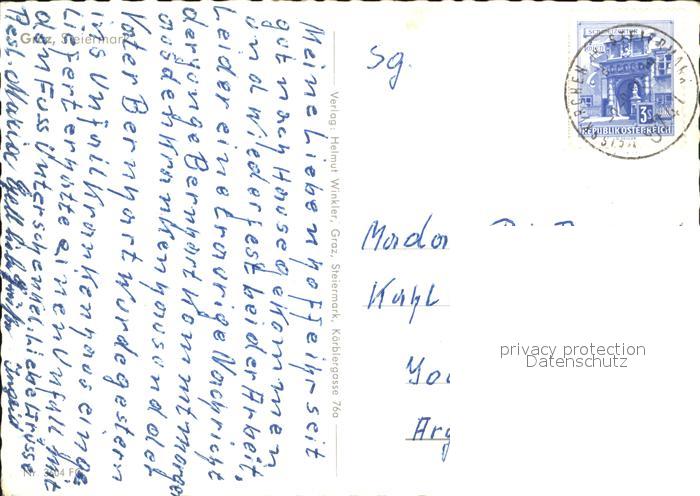 Graz, Steiermark
Meine Lieben hoffe ihr seit
gut nach Hause gekommen
und wieder fest bei der Arbeit.
Leider eine traurige Nachricht
der junge Bernhart kommt morgen
aus den Krankenhaus und der
Vater Bernhart wurde gestern
ins Unfallkrankenhaus einge
liefert er hatte einen Unfall mit
dem Fuss Unterschenkel. Liebe Grüsse
Ingrid
Nr. FG
Verlag: Helmut Winkler, Graz, Steiermark, Körblergasse 76a
Sg.
3S
REPUBLIK ÖSTERREICH
STEIERMARK
Kahl
privacy protection
Datenschutz